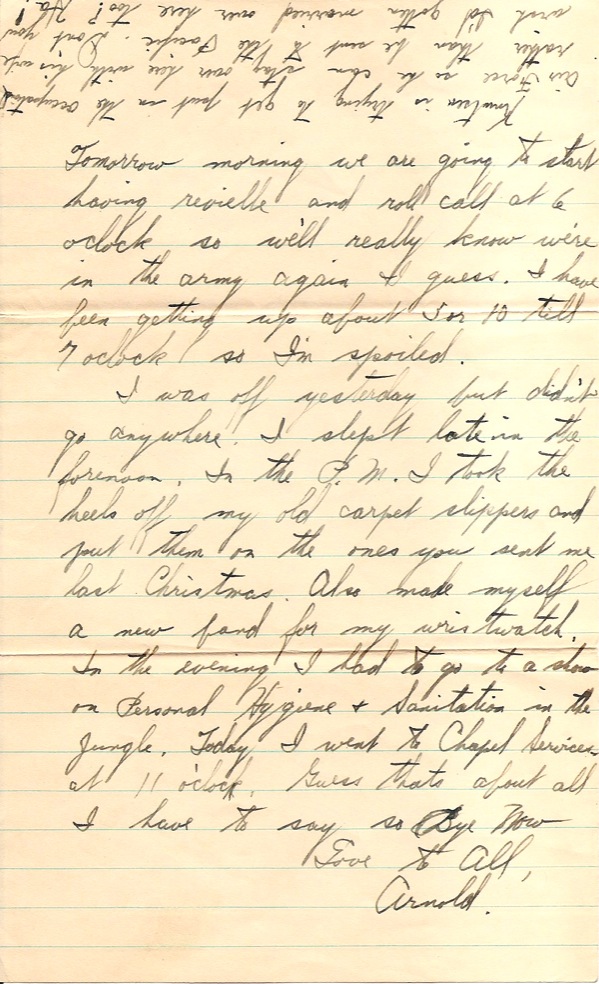 is trying to get put in the Occupation
Air Force so he can stay over here with his wife
rather than be sent to the Pacific. Dont you
wish I'd gotten married over here too? Ha!
Tomorrow morning we are going to start
having revielle and roll call at 6
oclock so we'll really know we're
in the army again I guess. I have
been getting up about 5 or 10 till
7 oclock so I'm spoiled.
I was off yesterday but didn't
go anywhere. I slept late in the
forenoon. In the P.M. I took the
heels off my old carpet slippers and
put them on the ones you sent me
last Christmas. Also made myself
a new band for my wristwatch.
In the evening I had to go to a show
on Personal Hygiene + Sanitation in the
Jungle. Today I went to Chapel Services
at 11 o'clock. Guess thats about all
I have to say so Bye Now
Love to All,
Arnold.